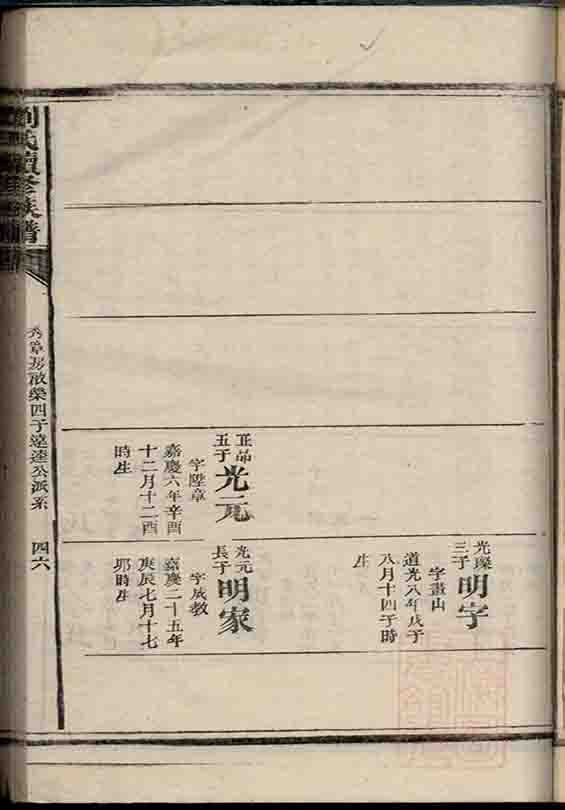 光璨
三子
明字
字畫山
道光八年戊子
八月十四子時
生
正常
五子
光元
字陞章
嘉慶六年辛酉
十二月十二酉
時生
光元
長子
明家
字成教
嘉慶二十五年
庚辰七月十七
卯時生
劉氏續修族譜
房啟榮四子達達公派系
四六